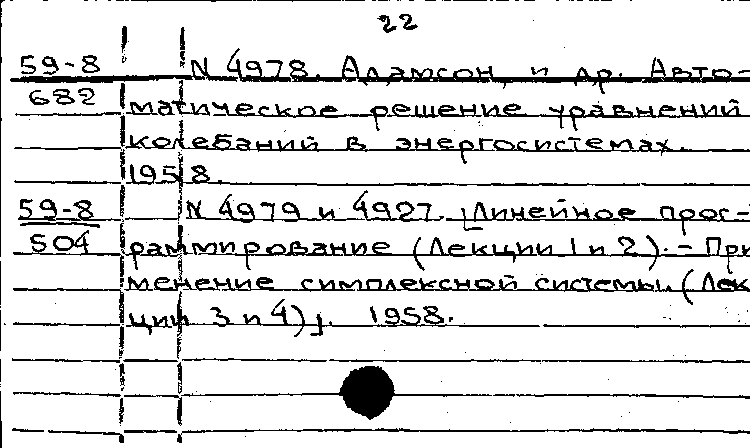 22
59-8 N 4978. Адамсон, и др. Авто-
682 матическое решение уравнений
колебаний в энергосистемах.
1958.
59-8 N 4979 и 4927. [Линейное прог-
504 раммирование (Лекции 1 и 2). - При
менение симплексной системы. (Лек
ции 3 и 4)]. 1958.